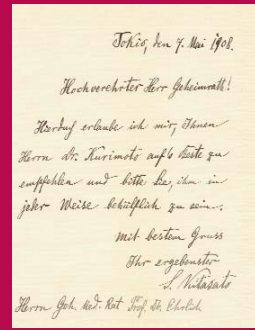 Tokio, den 7. Mai 1908.
Hochverehrter Herr Geheimratt!
Hierduch erlaube ich mir, Ihnen
Herrn Dr. Kurimoto aufs beste zu
empfehlen und bitte Sie, ihm in
jeder Weise behülflich zu sein.
Mit bestem Gruss
Ihr ergebenster
S. Kitasato
Herrn Geh. Med. Rat Prof. Dr. Ehrlich